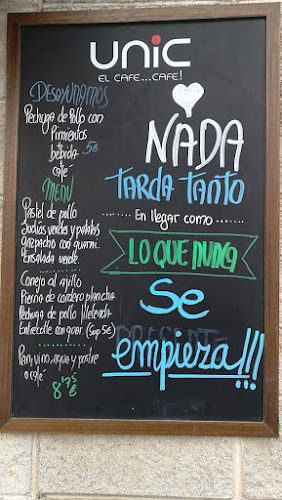 UNiC
EL CAFE...CAFE!
DESAYUNAMOS
Pechuga de Pollo con
Pimientos
+
bebida 5€
+
café
MENÚ
Pastel de pollo
Judías verdes y patatas
Gazpacho con guarni.
Ensalada verde
Conejo al ajillo
Pierna de cordero plancha
Pechuga de pollo
Entrecotte con guar. (Sup 5€)
Pan, vino, agua y postre
o café
8'75 €
NADA
TARDA TANTO
En llegar como
LO QUE NUNCA
Se
empieza!!!